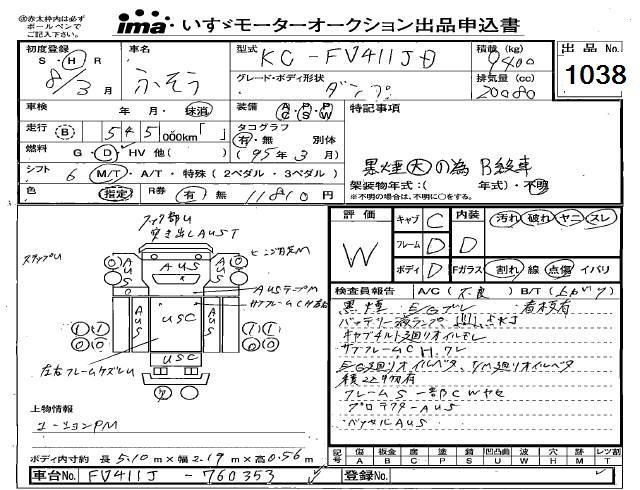 ※赤太枠内は必ずボールペンでご記入下さい。
ima いすゞモーターオークション出品申込書
初度登録 車名 型式 KC-FV411JD 積載 (kg) 9400 出品No.
S・H・R 8/3月 ふそう グレード・ボディ形状 ダンプ 排気量 (cc) 20080 1038
車検 年・月・抹消 装備 A/C P/S P/W 特記事項
走行 B 545 000km「 」 タコグラフ 有・無 別体
燃料 G・D・HV 他( ) ( 95年 3月)
シフト 6 M/T・A/T・特殊(2ペダル・3ペダル) 黒煙大の為B級車
色 指定 R券 有 無 11810円 架装物年式:( 年式)・不明
※不明の場合は、不明に○をする。
評価 W キャブ C 内装 D 汚れ 破れ ヤニ スレ
フレーム D
ボディ D Fガラス 割れ 線 点傷 イバリ
検査員報告 A/C(不良) B/T(
黒煙 E/Gブレ 看板有
バッテリー液ランプ
キャブチルト廻りオイルモレ
サブフレームCH.ワレ
E/G廻りオイルベタ、T/M廻りオイルベタ
積22物有
フレームS 一部CWヤセ
プロテクターAUS
ベッセルAUS
突き出しAUST
ステップU
AUS
AUS
AUS
AUSテープM
サブフレームCH左右
AUS
USC
AUS
USC
左右フレームケズレU
上物情報
ボディ内寸 約 長5.10m×幅2.19m×高0.56m
記号 傷 A 板金 B 腐 C 塗 P 錆 S 凹凸曲 U 波 W 穴 H 跡 M レツ割 T
車台No. FV411J-760353 登録No.